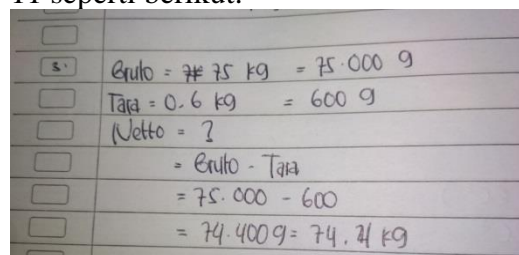 11 seperti berikut.
3. Bruto = 75 kg = 75.000 g
Tara = 0.6 kg = 600 g
Netto = ?
= Bruto - Tara
= 75.000 - 600
= 74.400 g = 74.4 kg